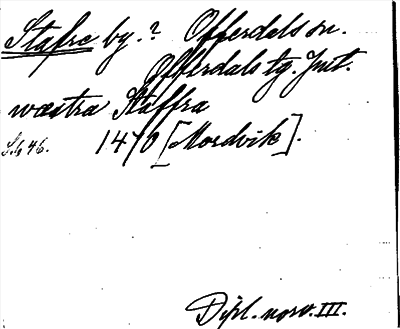 Stafre by.? Offerdals sn.
Offerdals tg. Jmt.
wæstra Staffra
S. 46. 1470 [Mordvik].
Dipl. norv. III.